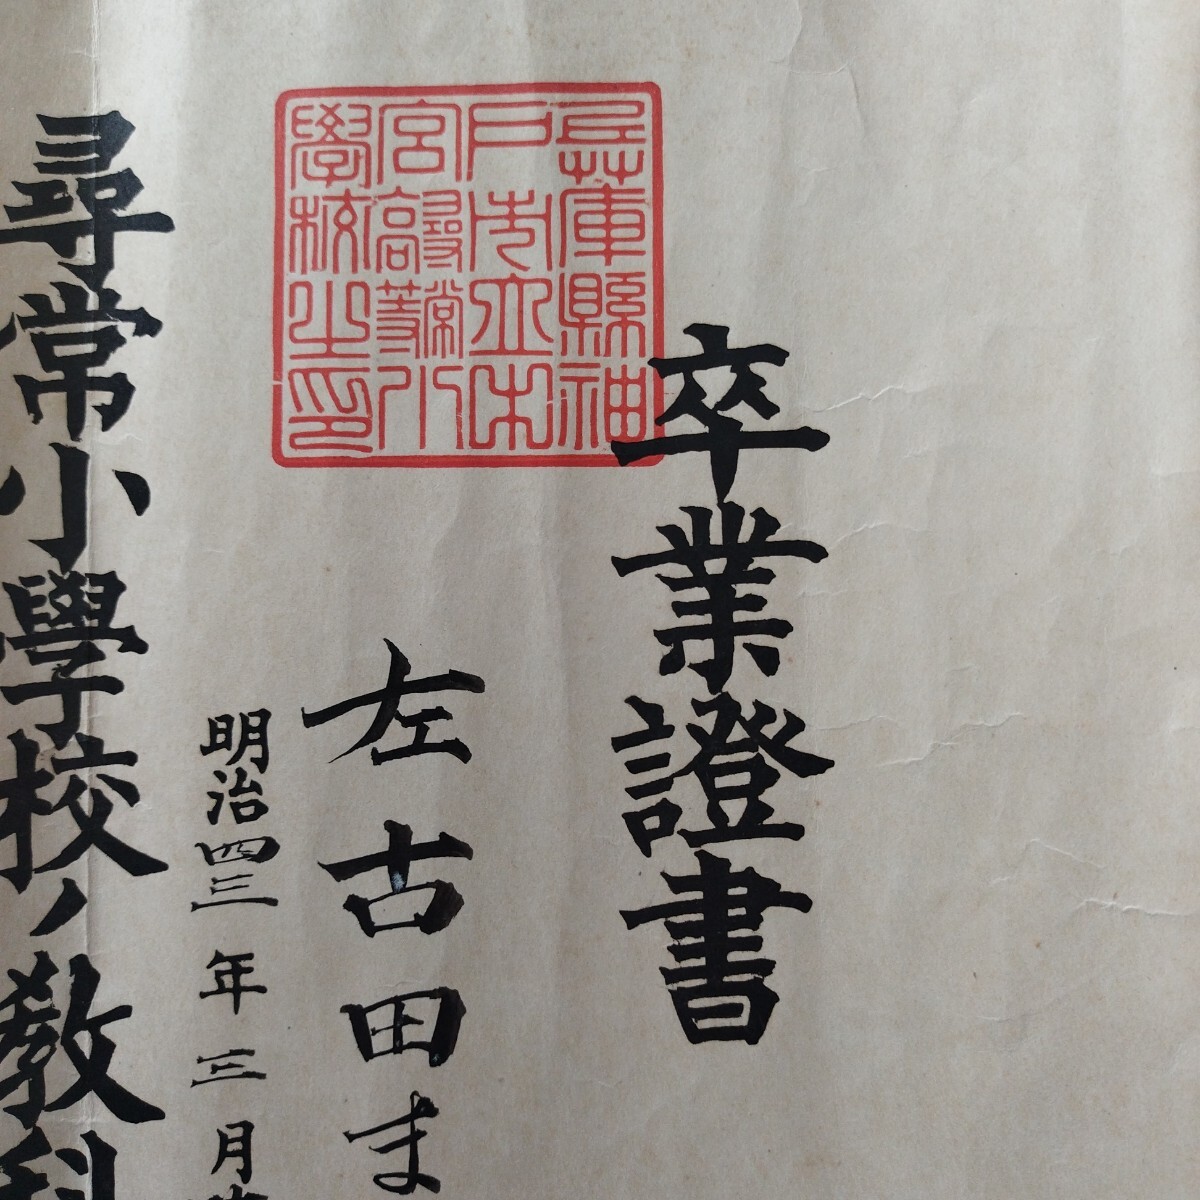 兵庫縣神
戸市立本
宮尋常高等小
學校之印
卒業證書
左古田ま
明治四三年三月
尋常小學校ノ教科